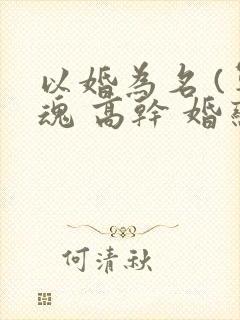 以婚為名(
魂 高幹 婚
何清秋